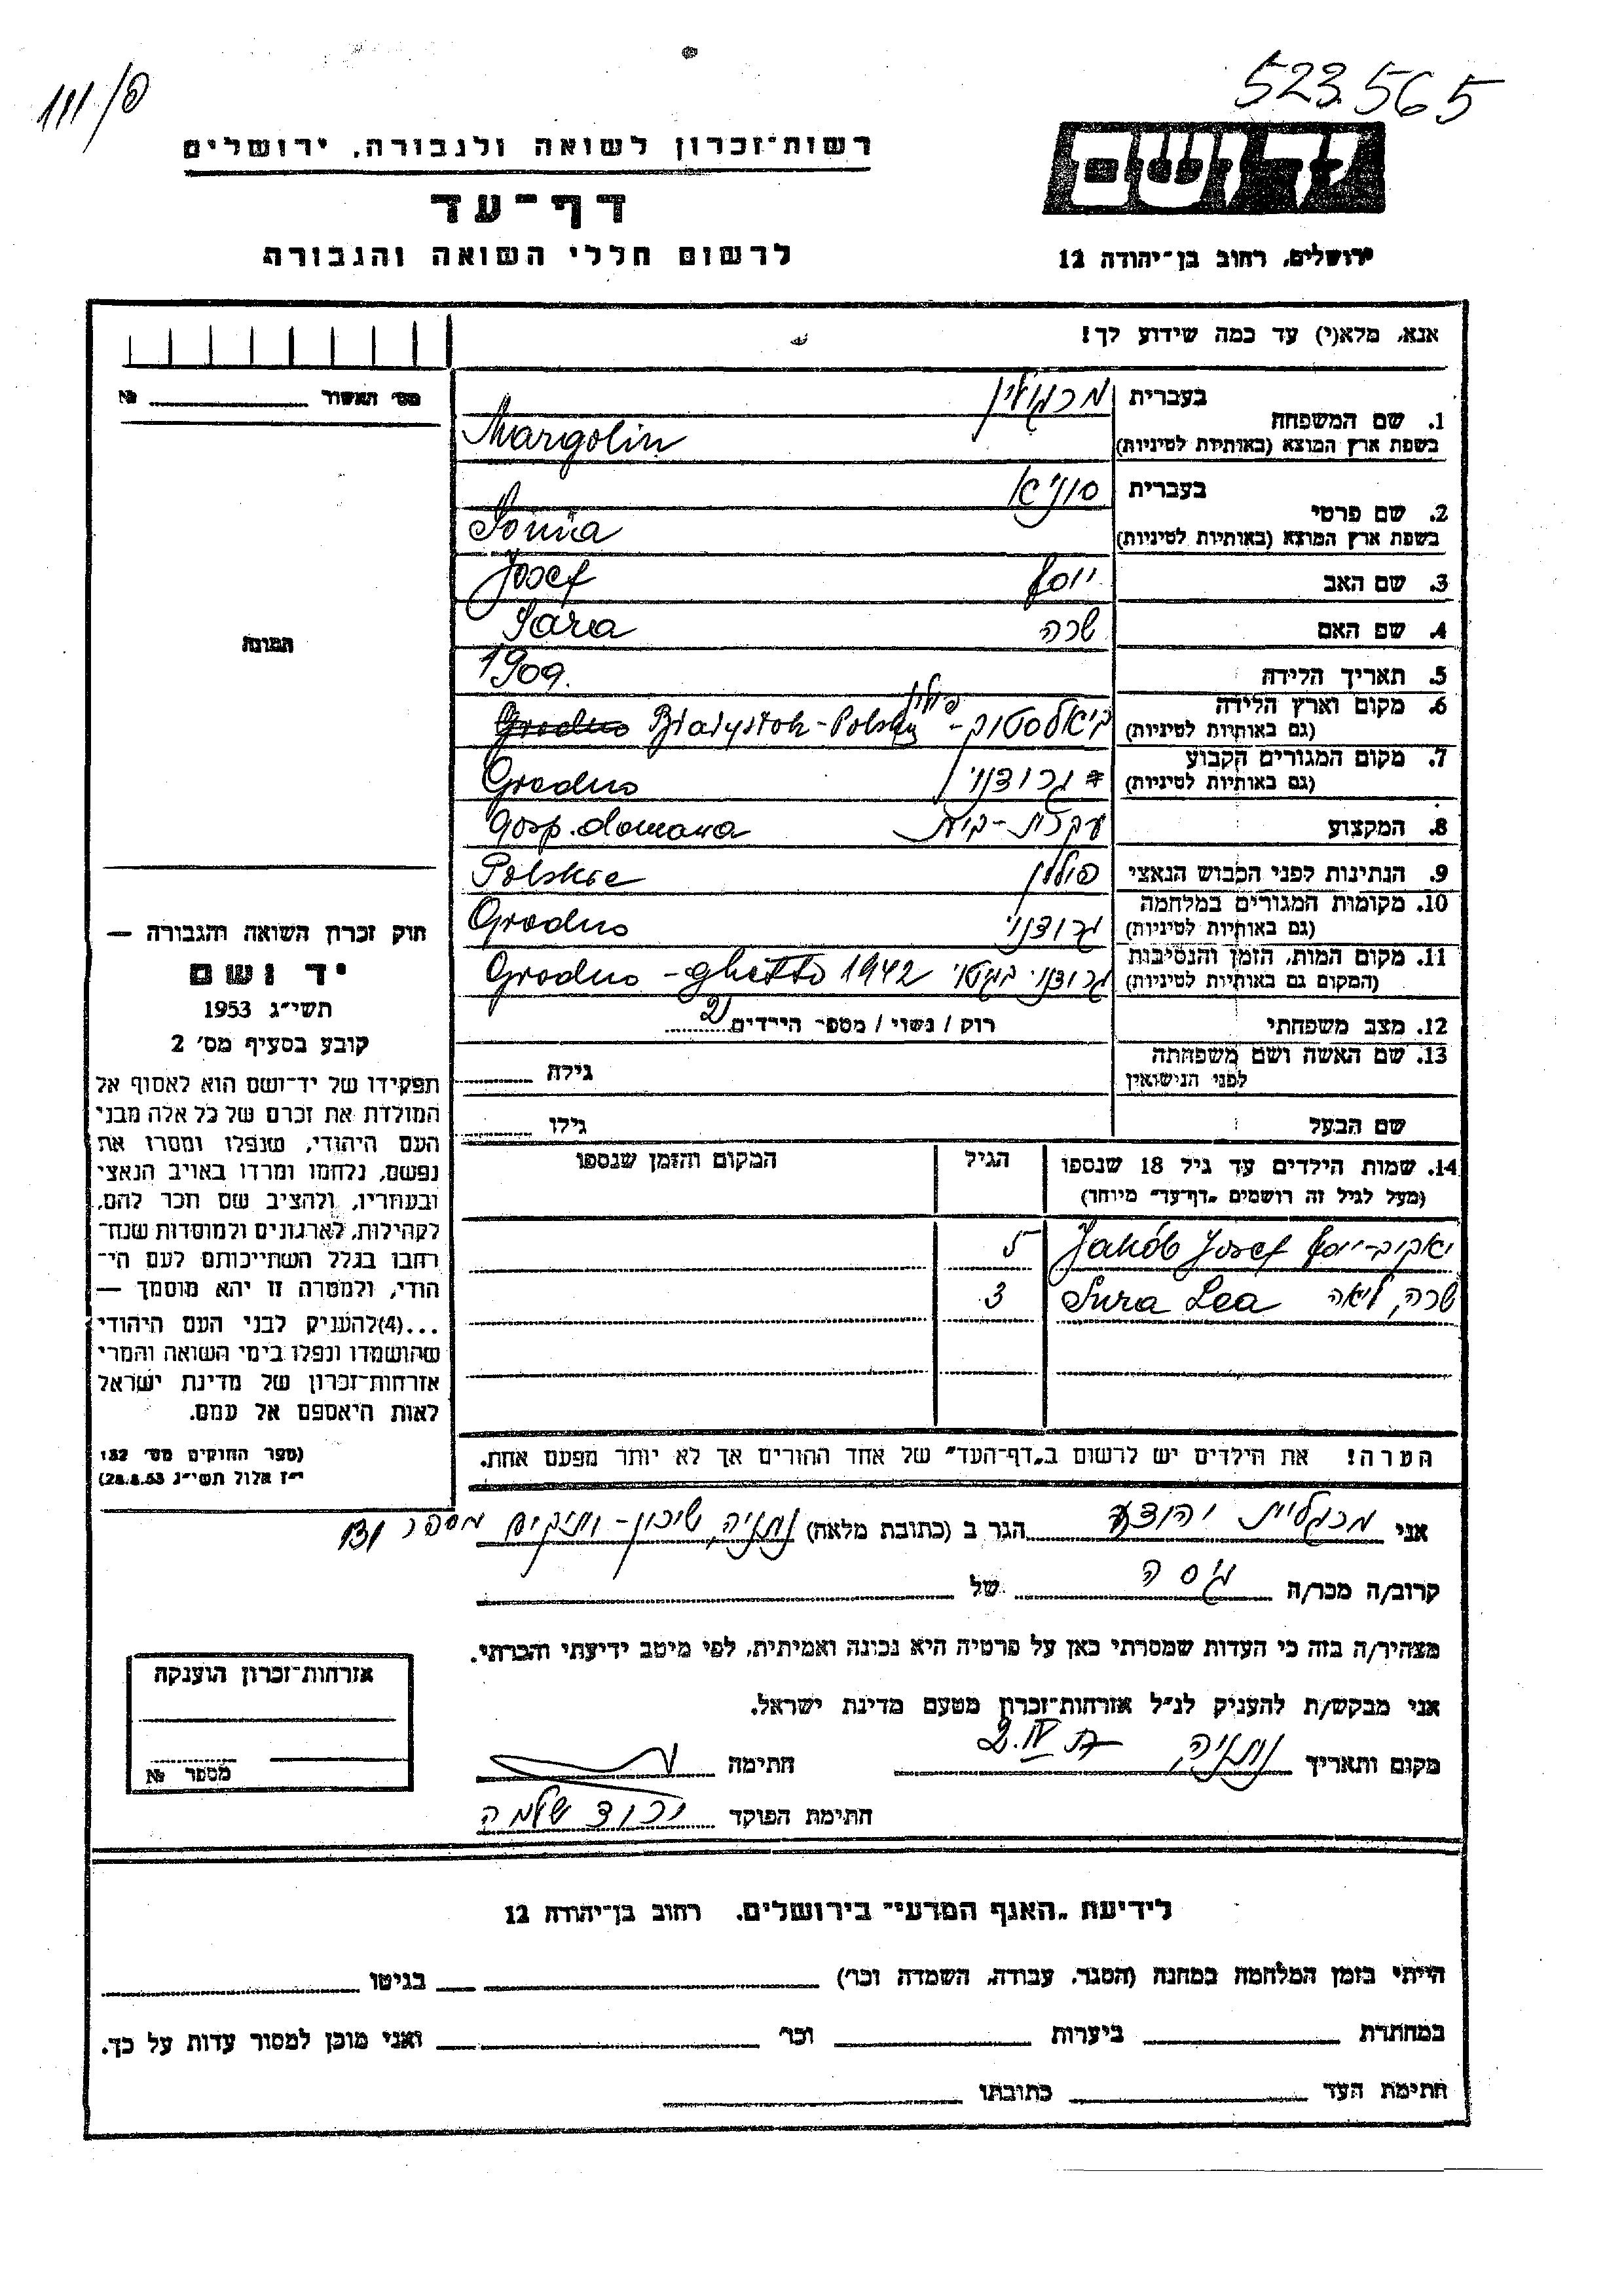 פ/111
523565
רשות־זכרון לשואה ולגבורה, ירושלים
דף־עד
לרשום חללי השואה והגבורה
יד ושם
ירושלים, רחוב בן־יהודה 12
אנא, מלא(י) עד כמה שידוע לך!
מס' האשור № 
בעברית מרגולין
1. שם המשפחה
בשפת ארץ המוצא (באותיות לטיניות) Margolin
בעברית סוניא
2. שם פרטי
בשפת ארץ המוצא (באותיות לטיניות) Sonia
3. שם האב יוסף Josef
4. שם האם שרה Sara
5. תאריך הלידה 1909.
6. מקום וארץ הלידה ביאלסטוק - פולין Białystok - Polska Grodno
(גם באותיות לטיניות)
7. מקום המגורים הקבוע גרודנו Grodno
(גם באותיות לטיניות)
8. המקצוע עקרת-בית gosp. domowa
9. הנתינות לפני הכבוש הנאצי פולין Polskie
10. מקומות המגורים במלחמה גרודנו Grodno
(גם באותיות לטיניות)
11. מקום המות, הזמן והנסיבות גרודנו בגטו Grodno - ghetto 1942
(המקום גם באותיות לטיניות)
12. מצב משפחתי רוק / נשוי / מספר הילדים 2
13. שם האשה ושם משפחתה גילה
לפני הנישואין
שם הבעל גילו
14. שמות הילדים עד גיל 18 שנספו הגיל המקום והזמן שנספו
(מעל לגיל זה רושמים "דף־עד" מיוחד)
יאקוב-יוסף Jakób Josef 5
שרה, ליאה Sura Lea 3
הערה! את הילדים יש לרשום ב"דף־העד" של אחד ההורים אך לא יותר מפעם אחת.
התמונה
חוק זכרון השואה והגבורה —
יד ושם
תשי"ג 1953
קובע בסעיף מס' 2
תפקידו של יד־ושם הוא לאסוף אל
המולדת את זכרם של כל אלה מבני
העם היהודי, שנפלו ומסרו את
נפשם, נלחמו ומרדו באויב הנאצי
ובעוזריו, ולהציב שם וזכר להם,
לקהילות, לארגונים ולמוסדות שנח־
רחבו בגלל השתייכותם לעם הי־
הודי, ולמטרה זו יהא מוסמך —
...(4)להעניק לבני העם היהודי
שהושמדו ונפלו בימי השואה והמרי
אזרחות־זכרון של מדינת ישראל
לאות היאספם אל עמם.
(ספר החוקים מס' 132
י"ז אלול תשי"ג 28.8.53)
אני מרגליות יהודע הגר ב (כתובת מלאה) נתניה, שיכון-ותיקים מספר 131
קרוב/ה מכר/ה גיסה של
מצהיר/ה בזה כי העדות שמסרתי כאן על פרטיה היא נכונה ואמיתית, לפי מיטב ידיעתי והכרתי.
אני מבקש/ת להעניק לנ"ל אזרחות־זכרון מטעם מדינת ישראל.
מקום ותאריך נתניה 2.IV חתימה
חתימת הפוקד שלמה
אזרחות־זכרון הוענקה
מספר №
לידיעת "האגף המדעי" בירושלים. רחוב בן־יהודה 12
הייתי בזמן המלחמה במחנה (הסגר, עבודה, השמדה וכו') בגיטו
במחתרת ביערות וכו' ואני מוכן למסור עדות על כך.
חתימת העד כתובתו